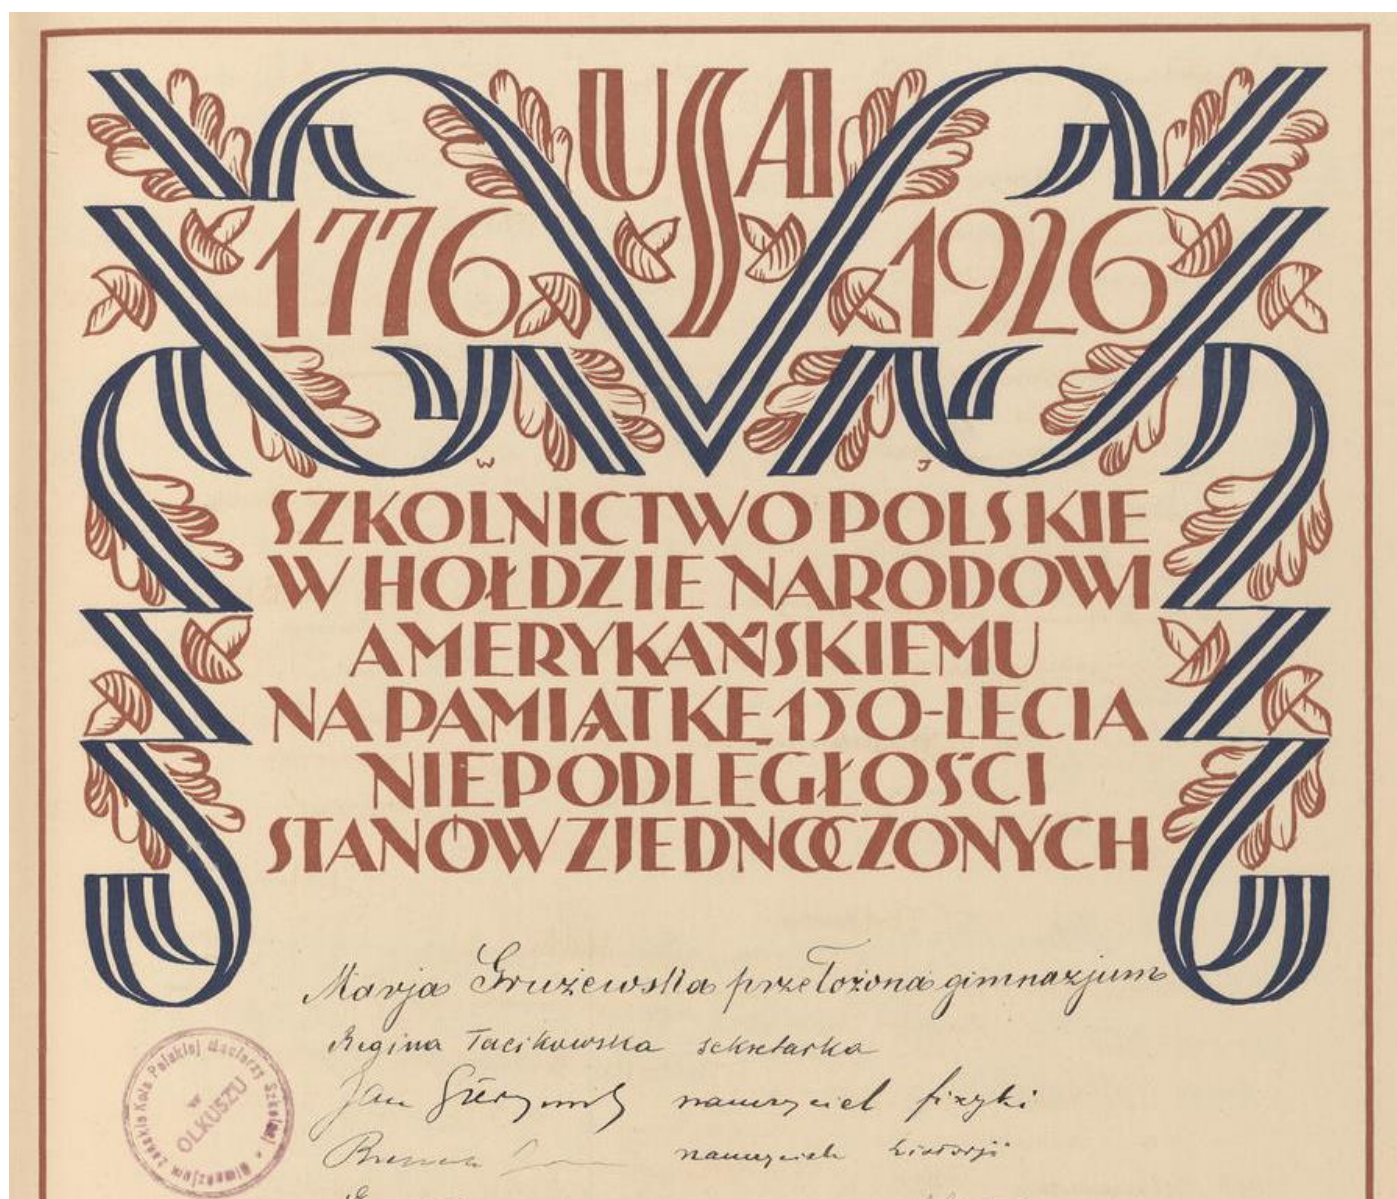 USA
1776 1926
W J
SZKOLNICTWO POLSKIE
W HOŁDZIE NARODOWI
AMERYKAŃSKIEMU
NA PAMIĄTKĘ 150-LECIA
NIEPODLEGŁOŚCI
STANÓW ZJEDNOCZONYCH
Marja Grużewska przełożona gimnazjum
Regina Tacikowska sekretarka
Jan nauczyciel fizyki
nauczyciel historji
Gimnazjum Żeńskie Koła Polskiej Macierzy Szkolnej
W
OLKUSZU